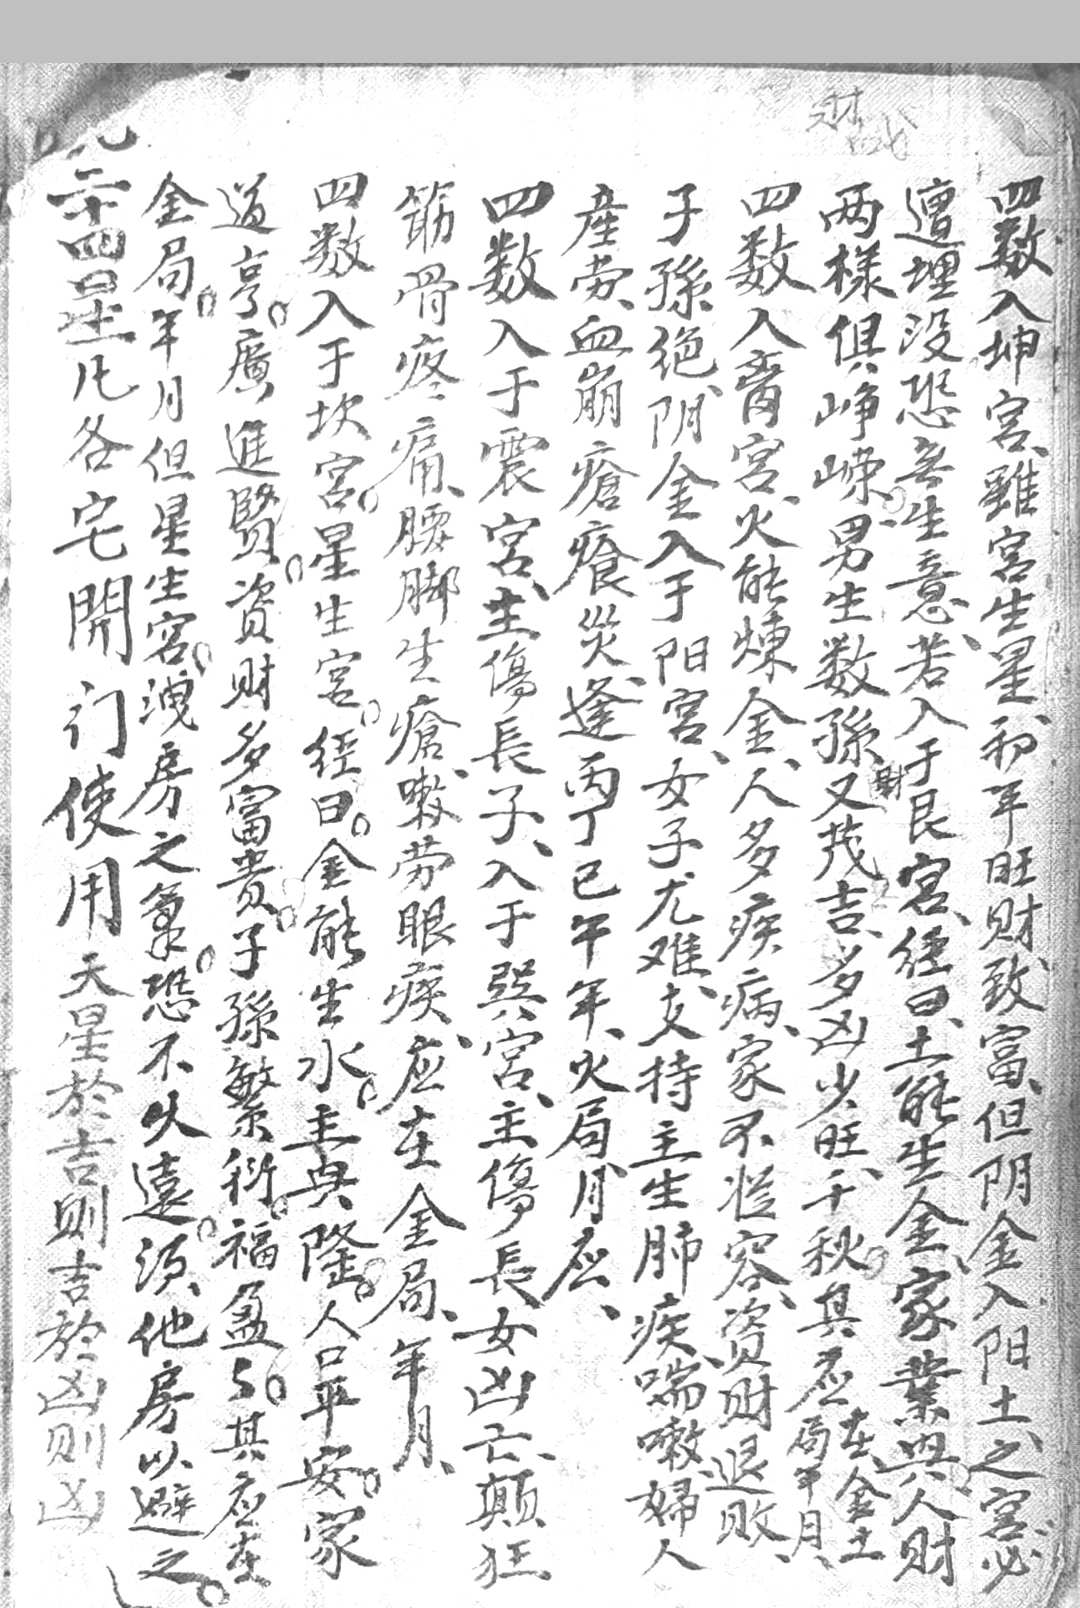 四数入坤宫、雖宫生星、初年旺财、致富、但阴金入阳土、之宫必
遭埋没恐無生意、若入于艮宫、经曰、土能生金、家業興人财
两樣俱峥嵘。男生数孫又茂吉、多凶少旺、千秋。其应在金土局年月、
财
四数入离宫、火能煉金、人多疾病、家不從容、资财退敗、
子孫绝、阴金入于阳宫、女子尤难、支持主生肺疾喘嗽、婦人
産劳、血崩瘡癢災、逢丙丁已午年、火局月应、
四数入于震宫、主傷長子、入于巽宫、主傷長女凶亡、颠狂
筋骨疼痛、腰脚生瘡、嗽劳眼疾、应在金局、年月、
四数入于坎宫。星生宫。经曰。金能生水。主興隆。人口平安。家
道亨。廣進賢。资财多富贵。子孫繁衍。福盈。其应在
金局。年月但星生宫。洩房之氣。恐不久遠。须他房以避之。
凡二十四星凡各宅開门使用天星於吉则吉於凶则凶